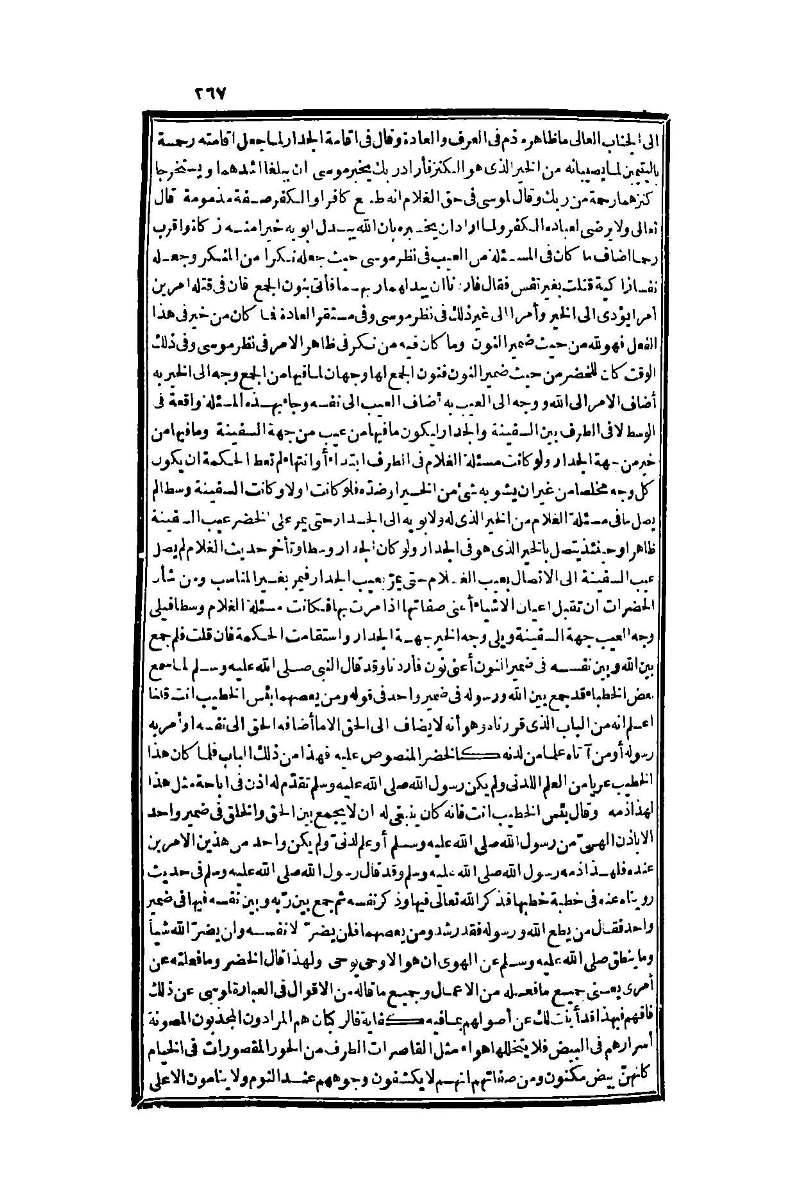 ٢٦٧
الى الجناب العالى ما ظاهره ذم فى العرف والعادة وقال فى اقامة الجدار لما جعل اقامته رحمة
باليتيمين لما يصيبانه من الخير الذى هو الكنز فأراد ربك يخبر موسى ان يبلغا اشدهما ويستخرجا
كنزهما رحمة من ربك وقال لموسى فى حق الغلام انه طبع كافرا والكفر صفة مذمومة قال
تعالى ولا يرضى لعباده الكفر ولما اراد ان يخبره بان الله يبدل ابويه خيرا منه زكاة وأقرب
رحما اضاف ما كان فى المسئلة من العيب فى نظر موسى حيث جعله نكرا من المنكر وجعله
نفسا زاكية قتلت بغير نفس فقال فاردنا ان يبدلهما ربهما فأتى بنون الجمع فان فى قتله امرين
أمرا يؤدى الى الخير وأمرا الى غير ذلك فى نظر موسى وفى مستقر العادة فما كان من خير فى هذا
الفعل فهو لله من حيث ضمير النون وما كان فيه من نكر فى ظاهر الامر فى نظر موسى وفى ذلك
الوقت كان للخضر من حيث ضمير النون فنون الجمع لها وجهان لما فيها من الجمع وجه الى الخير به
أضاف الامر الى الله ووجه الى العيب به أضاف العيب الى نفسه وجاء بهذه المسئلة واقعة فى
الوسط لا فى الطرف بين السفينة والجدار ليكون ما فيها من عيب من جهة السفينة وما فيها من
خير من جهة الجدار ولو كانت مسئلة الغلام فى الطرف ابتداء أو انتهاء لم تعط الحكمة ان يكون
كل وجه مخلصا من غير ان يشوبه شئ من الخير أو ضده فلو كانت اولا وكانت السفينة وسطا لم
يصل ما فى مسئلة الغلام من الخير الذى له ولابويه الى الجدار حتى يمر على الخضر عيب السفينة
ظاهرا وحينئذ يتصل بالخير الذى هو فى الجدار ولو كان الجدار وسطا وتأخر حديث الغلام لم يصل
عيب السفينة الى الاتصال بعيب الغلام حتى يمر بعيب الجدار فيمر بغير المناسب ومن شأن
الحضرات ان تقبل اعيان الاشياء أعنى صفاتها اذا مرت بها فكانت مسئلة الغلام وسطا فيلى
وجه العيب جهة السفينة ويلى وجه الخير جهة الجدار واستقامت الحكمة فان قلت فلم جمع
بين الله وبين نفسه فى ضمير النون أعنى نون فأردنا وقد قال النبى صلى الله عليه وسلم لما سمع
بعض الخطباء قد جمع بين الله ورسوله فى ضمير واحد فى قوله ومن يعصهما بئس الخطيب انت قلنا
اعلم انه من الباب الذى قررناه وهو أنه لا يضاف الى الحق الا ما أضافه الحق الى نفسه أو أمر به
رسوله أو من آتاه علما من لدنه كالخضر المنصوص عليه فهذا من ذلك الباب فلما كان هذا
الخطيب عريا من العلم اللدنى ولم يكن رسول الله صلى الله عليه وسلم تقدم له اذن فى اباحة مثل هذا
لهذا ذمه وقال بئس الخطيب انت فانه كان ينبغى له ان لا يجمع بين الحق والخلق فى ضمير واحد
الا باذن الهى من رسول الله صلى الله عليه وسلم أو علم لدنى ولم يكن واحد من هذين الامرين
عنده فلهذا ذمه رسول الله صلى الله عليه وسلم وقد قال رسول الله صلى الله عليه وسلم فى حديث
رويناه عنه فى خطبة خطبها فذكر الله تعالى فيها وذكر نفسه ثم جمع بين ربه وبين نفسه فيها فى ضمير
واحد فقال من يطع الله ورسوله فقد رشد ومن يعصهما فلن يضر الا نفسه ولن يضر الله شيأ
وما ينطق صلى الله عليه وسلم عن الهوى ان هو الا وحى يوحى ولهذا قال الخضر وما فعلته عن
أمرى يعنى جميع ما فعله من الاعمال وجميع ما قاله من الاقوال فى العبارة لموسى عن ذلك
فافهم فبهذا قد أبنت لك عن أصولهم بما فيه كفاية فالركبان هم المرادون المجذوبون المصونة
أسرارهم فى البيض فلا يتخللها هواء مثل القاصرات الطرف من الحور المقصورات فى الخيام
كانهن بيض مكنون ومن صفاتهم انهم لا يكشفون وجوههم عند النوم ولا ينامون الا على